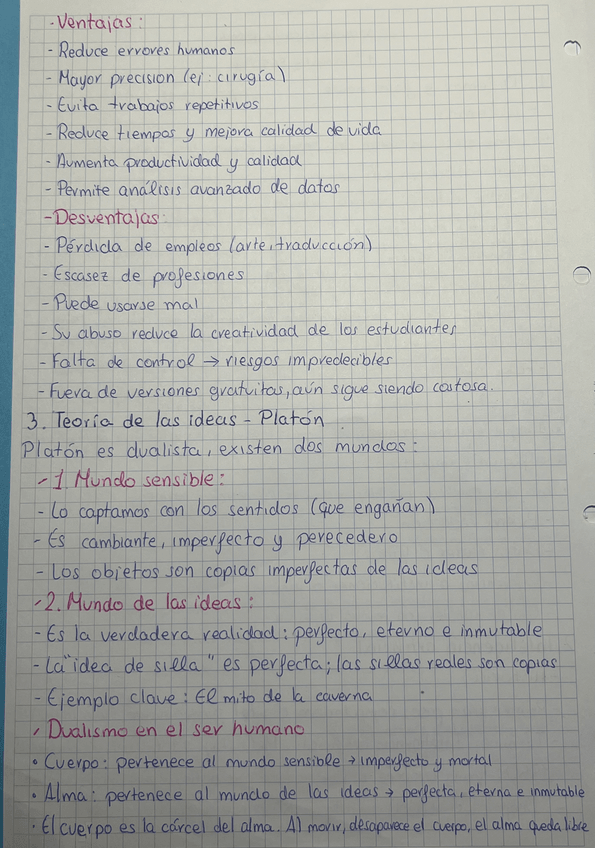 - Ventajas:
- Reduce errores humanos
- Mayor precision (ej: cirugía)
- Evita trabajos repetitivos
- Reduce tiempos y mejora calidad de vida
- Aumenta productividad y calidad
- Permite análisis avanzado de datos
- Desventajas:
- Pérdida de empleos (arte, traducción)
- Escasez de profesiones
- Puede usarse mal
- Su abuso reduce la creatividad de los estudiantes
- Falta de control → riesgos impredecibles
- Fuera de versiones gratuitas, aún sigue siendo costosa.
3. Teoría de las ideas - Platón
Platón es dualista, existen dos mundos:
- 1 Mundo sensible:
- Lo captamos con los sentidos (que engañan)
- Es cambiante, imperfecto y perecedero
- Los objetos son copias imperfectas de las ideas
- 2. Mundo de las ideas:
- Es la verdadera realidad: perfecto, eterno e inmutable
- La "idea de silla" es perfecta; las sillas reales son copias
- Ejemplo clave: El mito de la caverna
- Dualismo en el ser humano
• Cuerpo: pertenece al mundo sensible → imperfecto y mortal
• Alma: pertenece al mundo de las ideas → perfecta, eterna e inmutable
• El cuerpo es la cárcel del alma. Al morir, desaparece el cuerpo, el alma queda libre